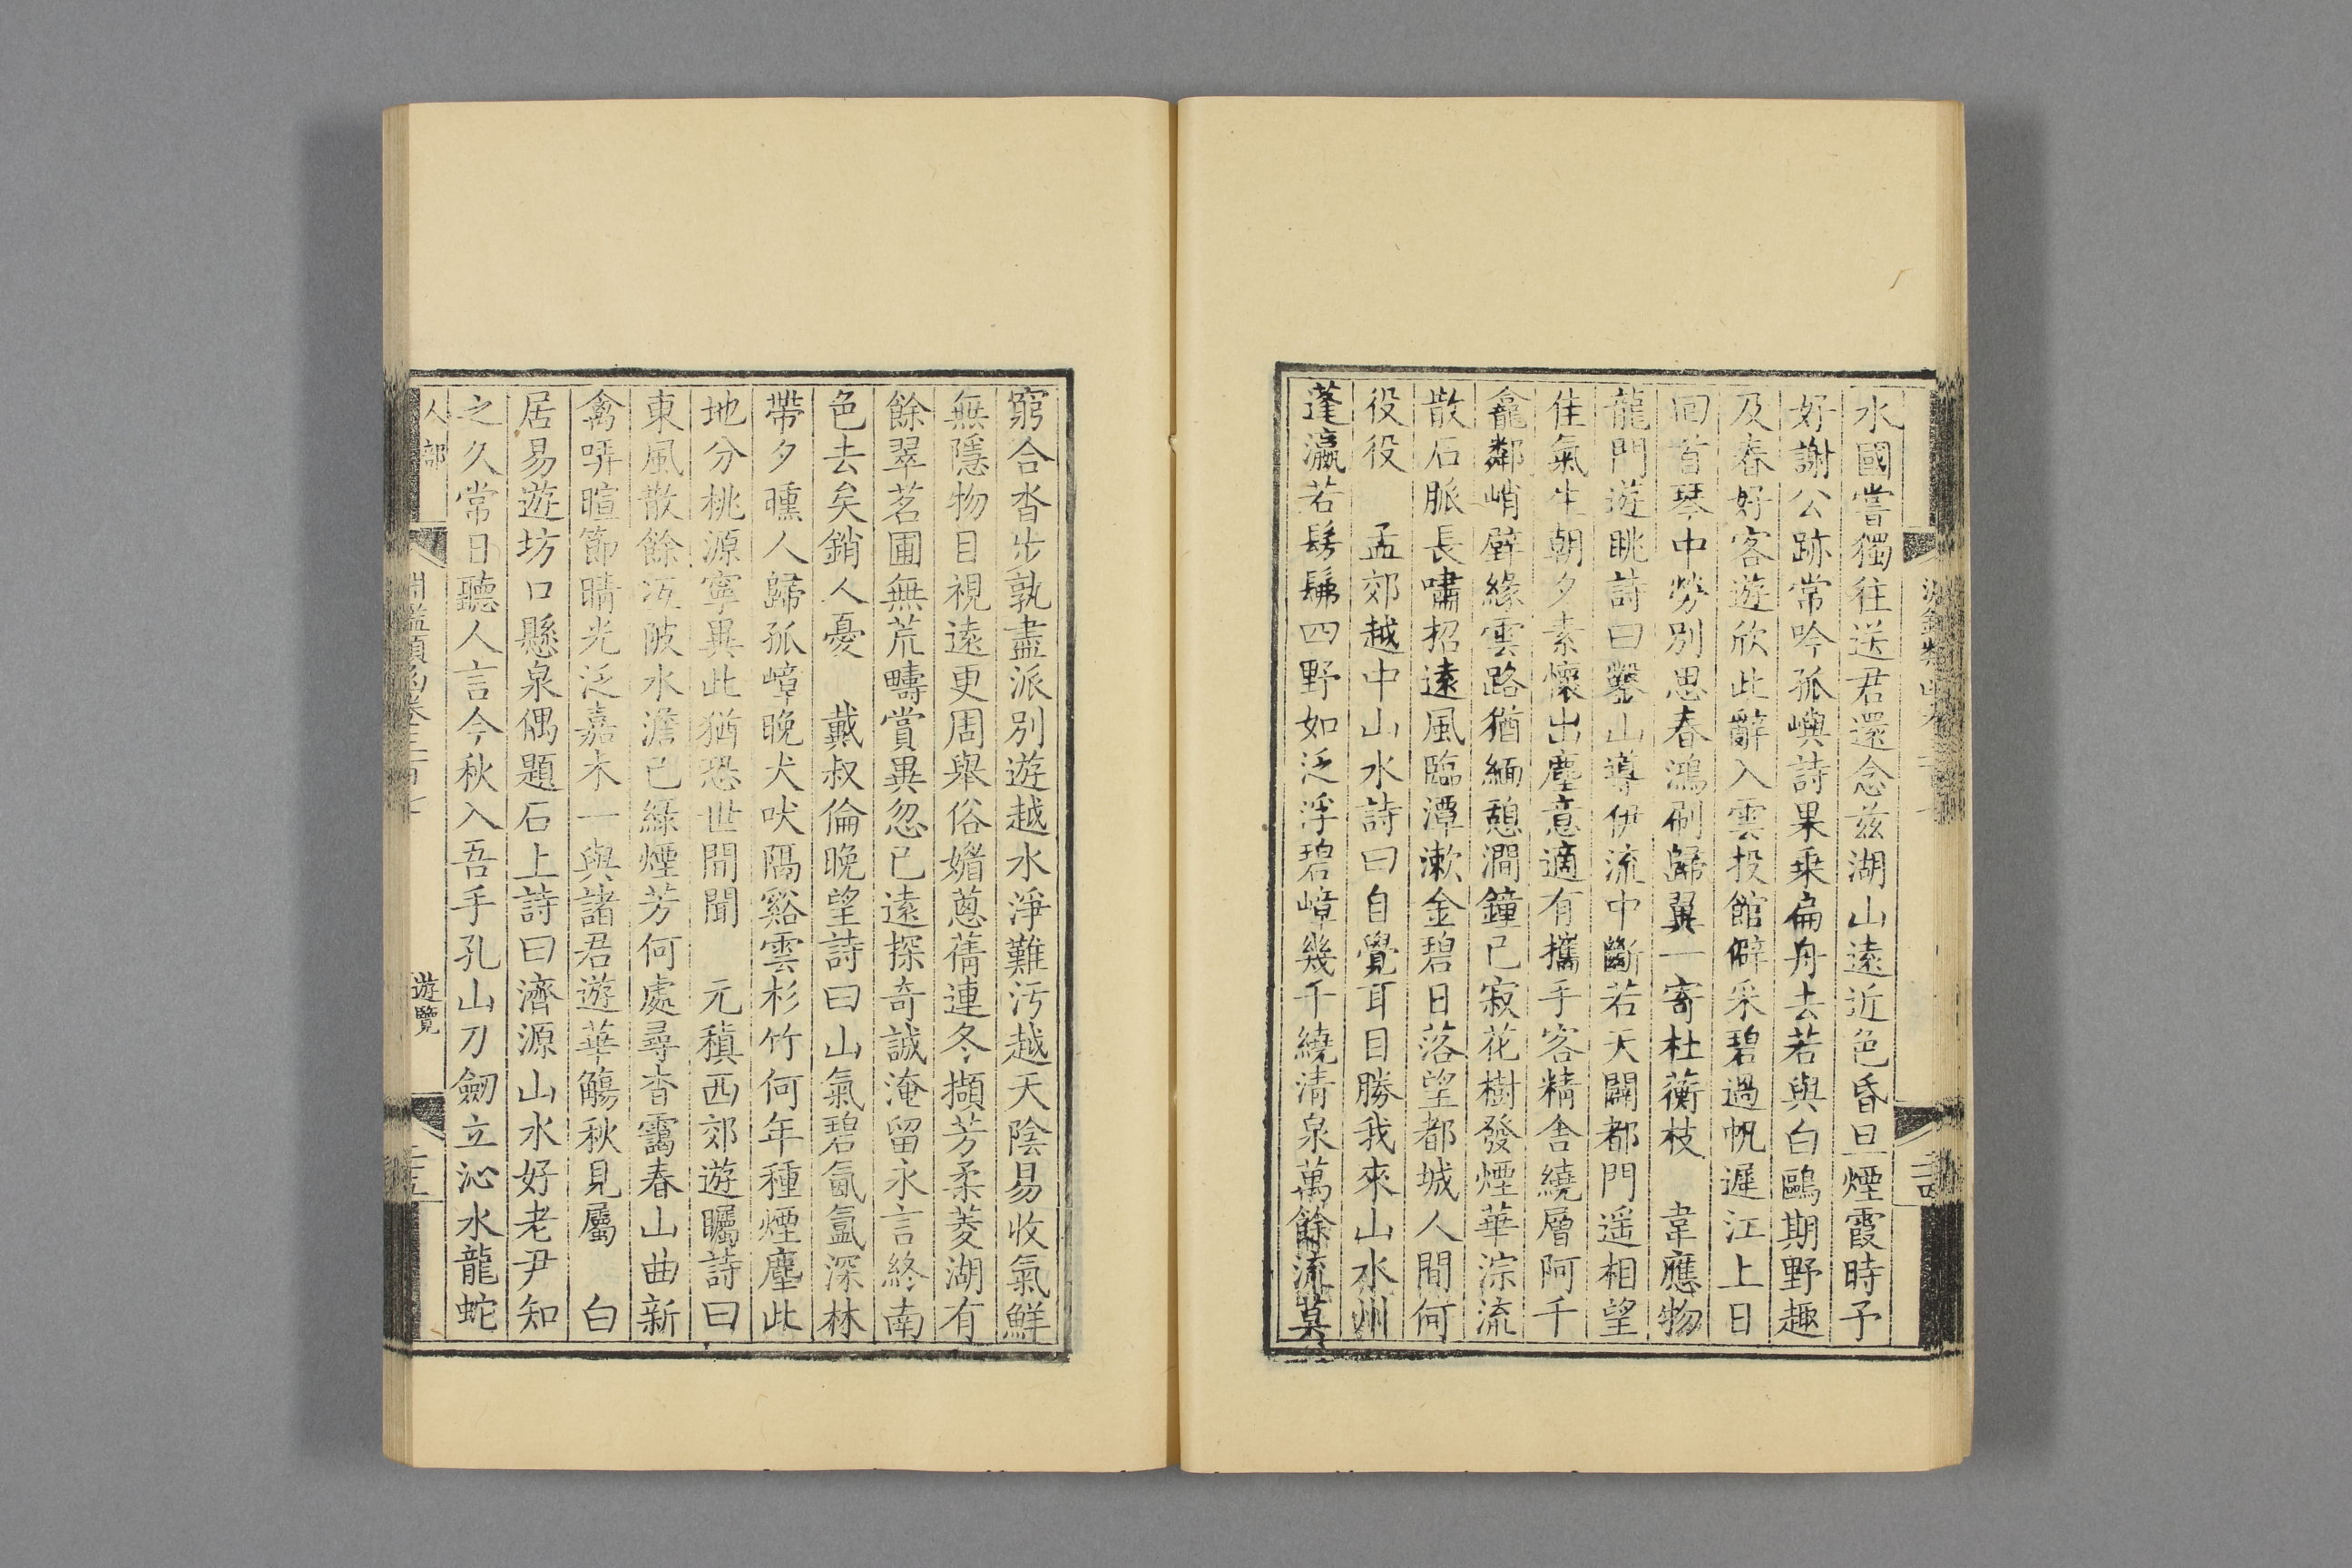 水國嘗獨往送君還念兹湖山遠近色昏旦煙霞時予
好謝公跡常吟孤嶼詩果乘扁舟去若與白鷗期野趣
及春好客遊欣此辭入雲投館僻采碧過帆遲江上日
回首琴中勞別思春鴻刷歸翼一寄杜蘅枝　韋應物
龍門遊眺詩曰鑿山導伊流中斷若天闢都門遥相望
佳氣生朝夕素懷出塵意適有攜手客精舍繞層阿千
龕鄰峭壁緣雲路猶緬憩澗鐘已寂花樹發煙華淙流
散石脈長嘯招遠風臨潭漱金碧日落望都城人間何
役役　孟郊越中山水詩曰自覺耳目勝我來山水州
蓬瀛若髣髴四野如泛浮碧嶂幾千繞清泉萬餘流莫
窮合沓步孰盡派別遊越水淨難污越天陰易收氣鮮
無隱物目視遠更周舉俗媚蔥蒨連冬擷芳柔菱湖有
餘翠茗圃無荒疇賞異忽已遠探奇誠淹留永言終南
色去矣銷人憂　戴叔倫晚望詩曰山氣碧氤氳深林
帶夕曛人歸孤嶂晚犬吠隔谿雲杉竹何年種煙塵此
地分桃源寧異此猶恐世間聞　元稹西郊遊矚詩曰
東風散餘沍陂水澹已綠煙芳何處尋杳靄春山曲新
禽哢暄節晴光泛嘉木一與諸君遊華觴秋見屬　白
居易遊坊口懸泉偶題石上詩曰濟源山水好老尹知
之久常日聽人言今秋入吾手孔山刀劒立沁水龍蛇
人部
遊覽